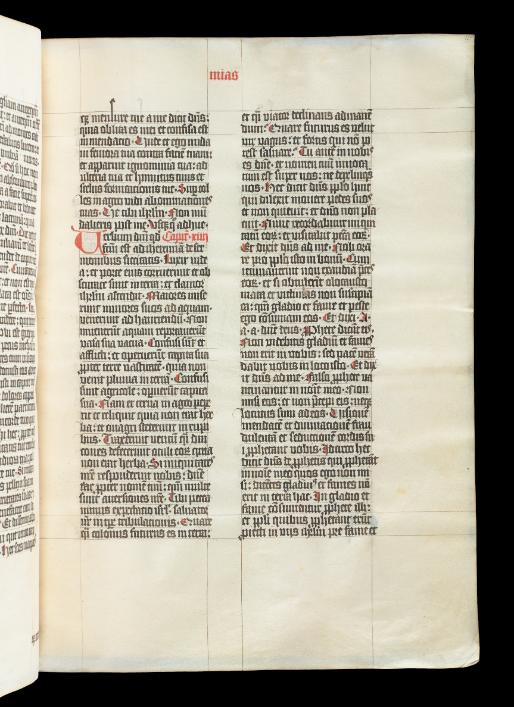 mias
q; mensure tue a me dicit dn̄s:
quia oblita es mei et confisa es
in mendacio. Unde et ego nuda
ui femora tua contra faciē tuam:
et apparuit ignominia tua: ad
ulteria tua et hynnitus tuus et
scelus fornicationis tue. Sup̄ col
les in agro vidi abominationes
tuas. Ve tibi ihrlm̄. Non mū
daberis post me. Usq;quo adhuc.
Verbum dn̄i qd̄ Capit. xiiii
factū est ad iheremiā de ser
monibus siccitatis. Luxit iude
a: et porte eius corruerunt et ob
scurate sunt in terra: et clamor
ihrlm̄ ascendit. Maiores mise
runt minores suos ad aquam:
venerunt ad hauriendū. Non
invenerūt aquam reportaverūt
vasa sua vacua. Confusi sūt et
afflicti: et operuerūt capita sua
propter terre vastitatē: quia non
venit pluvia in terrā. Confusi
sunt agricole: operuerūt capita
sua. Nam et cerva in agro pepe
rit et reliquit quia non erat her
ba: et onagri steterunt in rupi
bus. Traxerunt ventū q̄si dra
cones defecerunt oculi eoꝝ quia
non erat herba. Si iniquitates
nr̄e responderint nobis: dn̄e
fac propter nomē tuū: qm̄ multe
sunt aversiones nr̄e. Tibi pecca
vimus expectatio isrl̄. salvator
eius in tpr̄e tribulationis. Quare
q̄si colonus futurus es in terra:
et q̄si viator declinans ad manē
dum. Quare futurus es velut
vir vagus: et fortis qui nō po
test salvare. Tu autē in nobis
es dn̄e: et nomen tuū invoca
tum est super nos: ne derelinq̄s
nos. Hec dicit dn̄s populo huic
qui dilexit movere pedes suos
et non quievit: et dn̄o non pla
cuit. Nunc recordabitur iniqui
tatū eoꝝ: et visitabit pctā eoꝝ.
Et dixit dn̄s ad me. Noli ora
re pro populo isto in bonū. Cum
ieiunaverint non exaudiā preces
eoꝝ: et si obtulerit olocausto
mata et victimas non suscipiā
ea: qm̄ gladio et fame et peste
ego cōsumam eos. Et dixi. A.
a. a. dn̄e deus. Prophete dicūt eis.
Non videbitis gladiū et fames
non erit in vobis: sed pacē verā
dabit vobis in loco isto. Et dix
it dn̄s ad me. Falso prophete va
ticinantur in noīe meo. Non
misi eos: et non precepi eis: neq;
locutus sum ad eos. Visionē
mendacē et divinacionē frau
dulentā et seductionē cordis su
i prophetant vobis. Idcirco hec
dicit dn̄s de prophetis qui prophetāt
in noīe meo quos ego non mi
si: dicētes gladius et fames nō
erit in terra hac. In gladio et
fame cōsumentur prophete illi:
et populi quibus prophetant erūt
proiecti in viis ihrlm̄ pre fame et